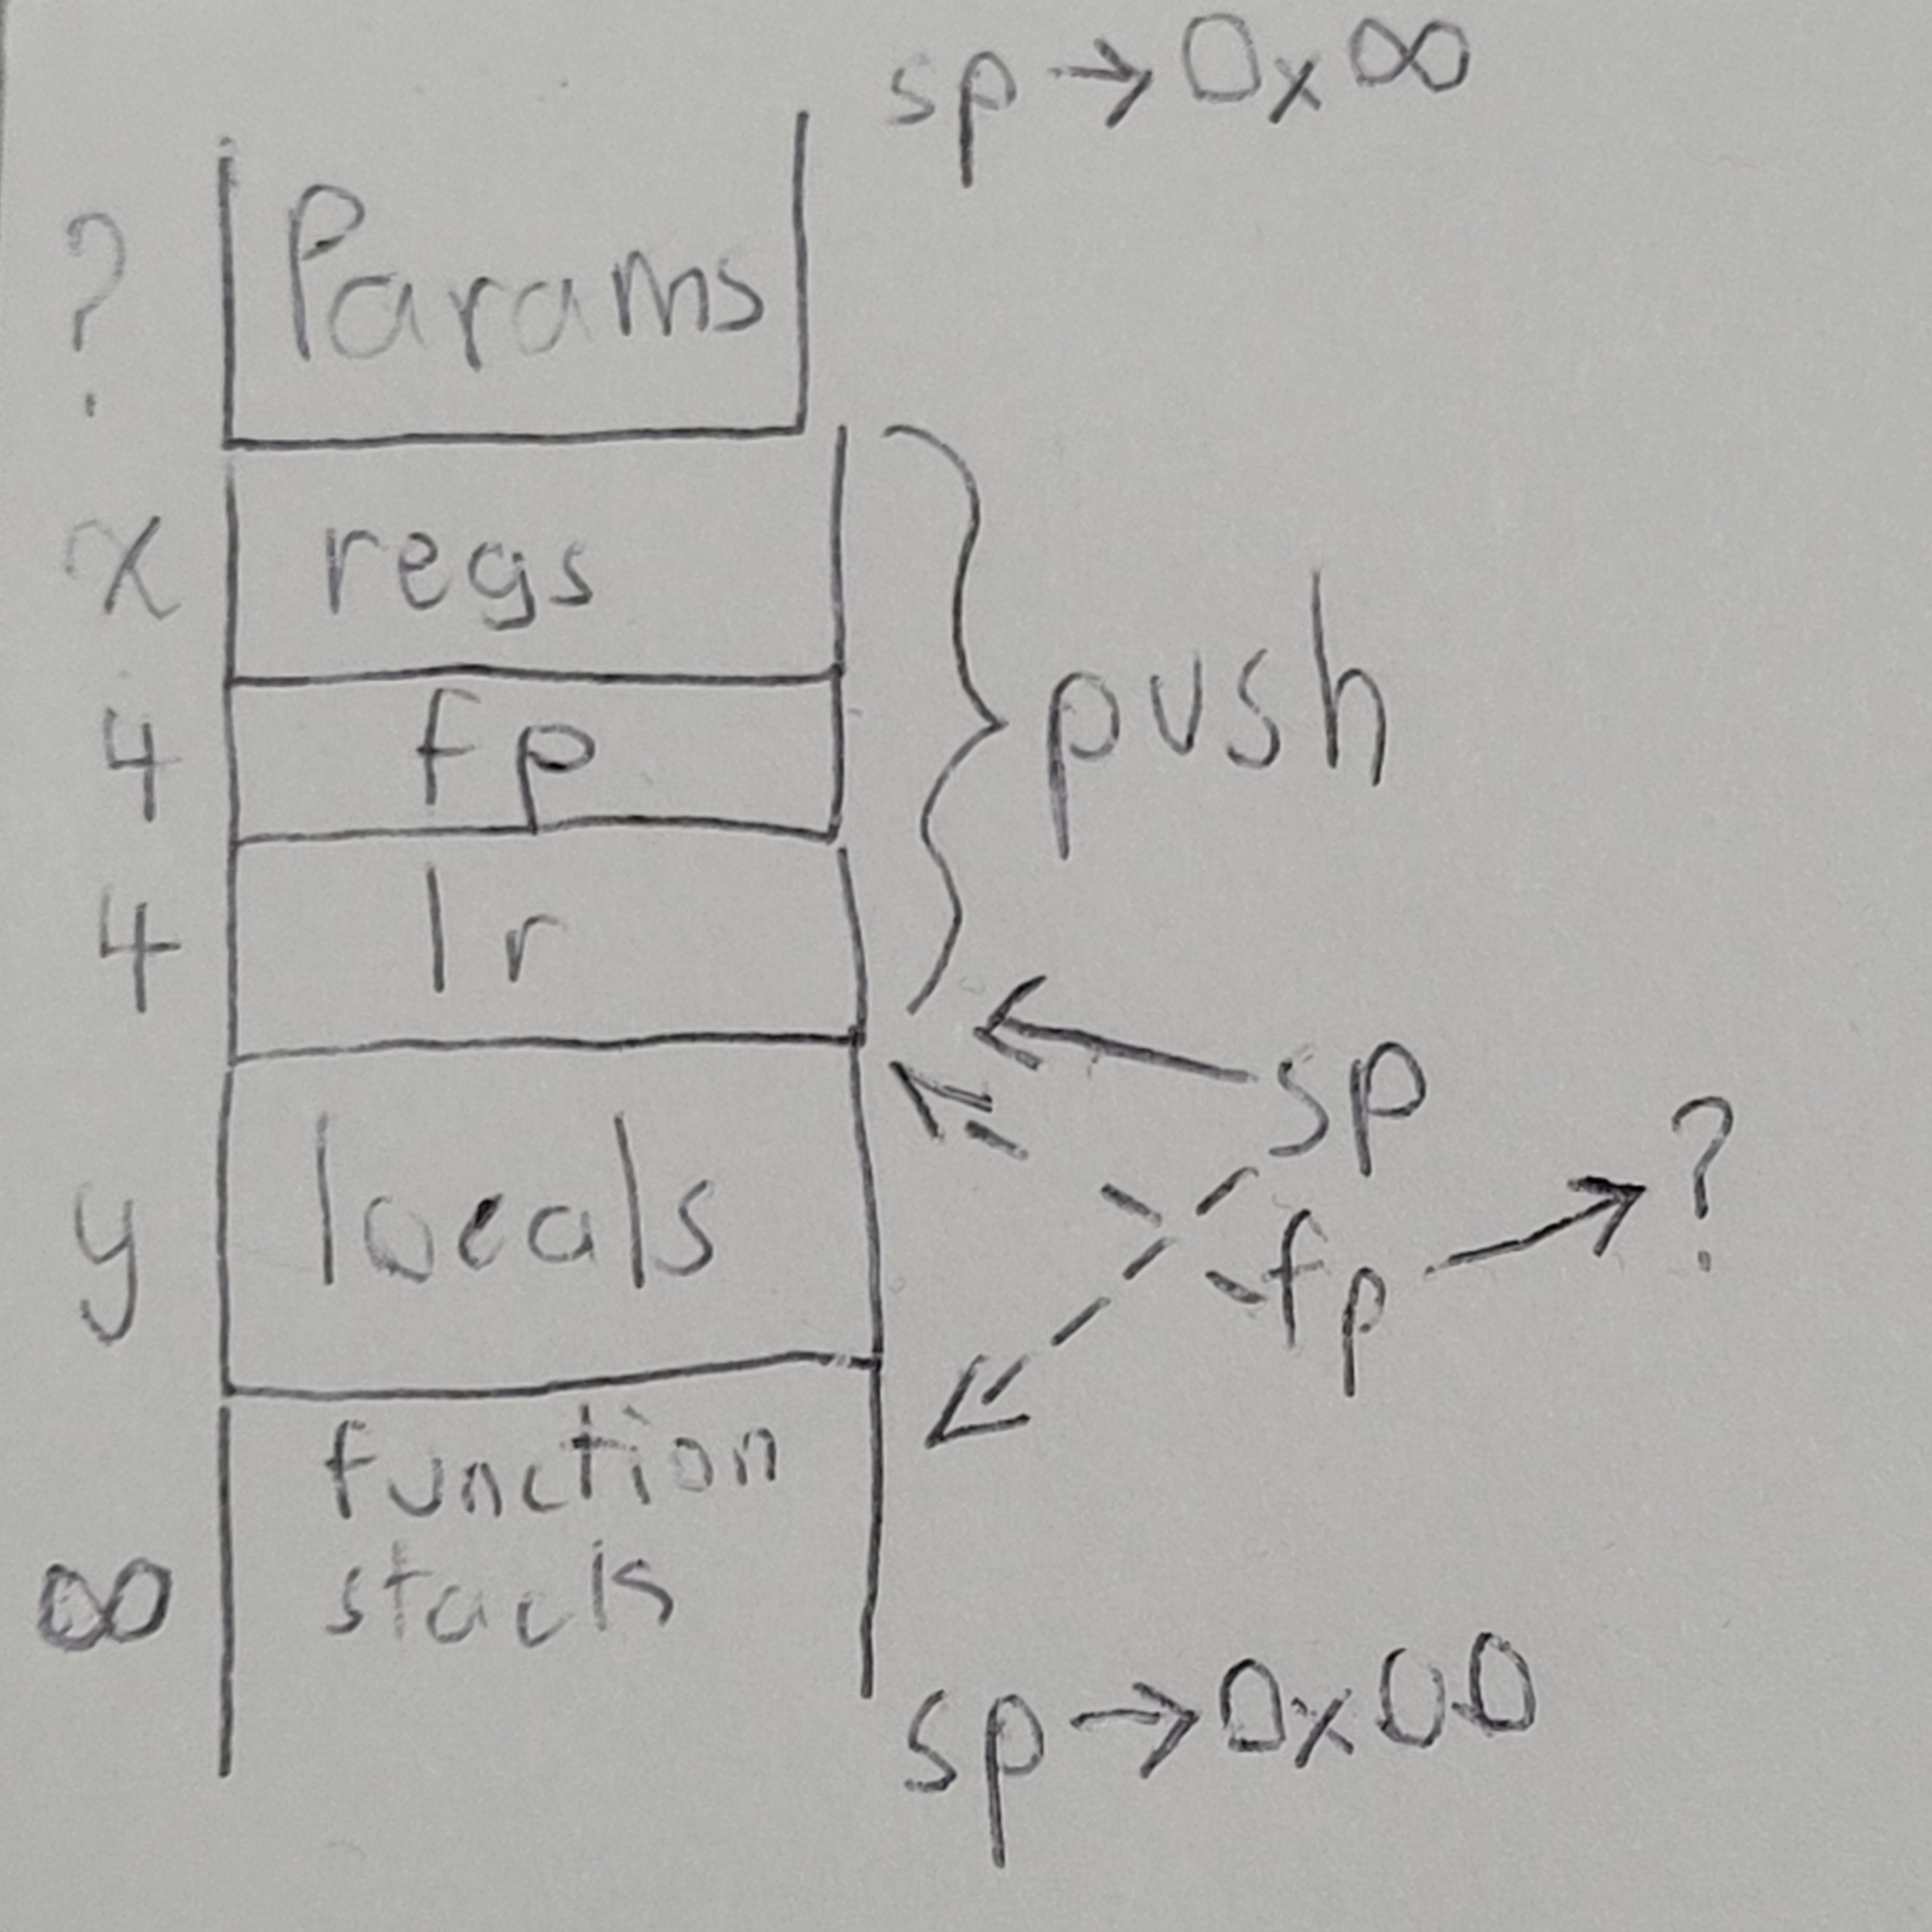 sp → 0x∞
? Params
x regs
4 fp
push
4 lr
sp
y locals
fp → ?
function
∞ stack
sp → 0x00